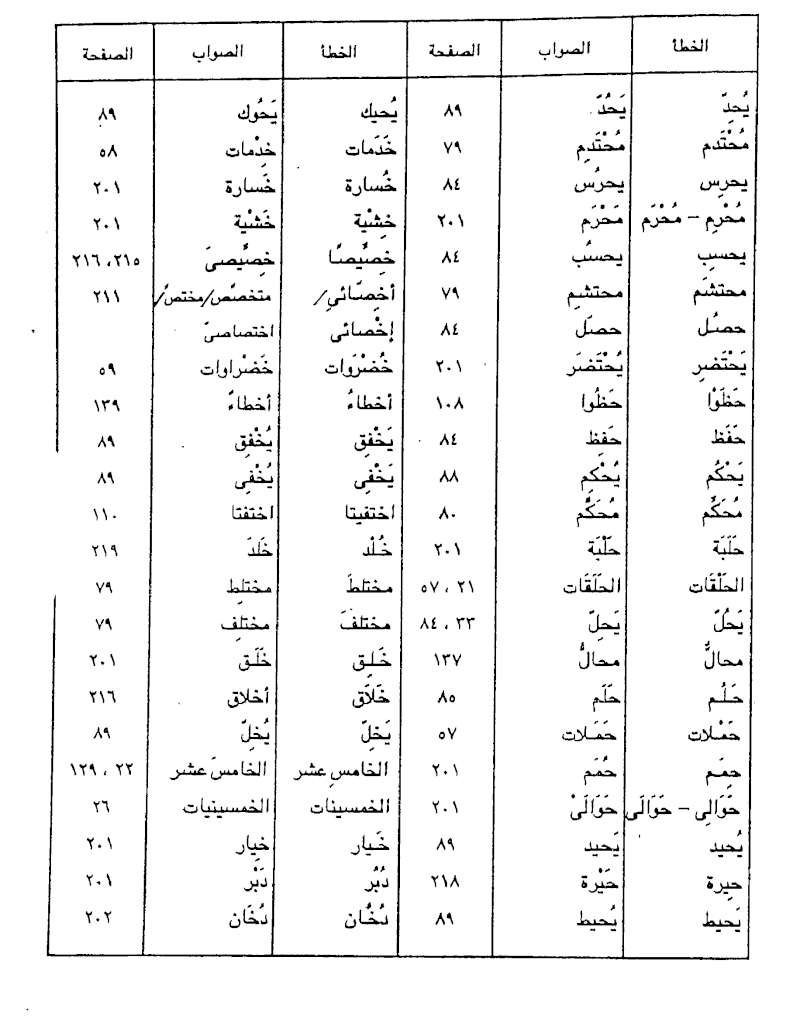 الخطأ الصواب الصفحة الخطأ الصواب الصفحة
يُحِدّ يَحُدّ ٨٩ يُحيك يَحُوك ٨٩
مُحْتَدَم مُحْتَدِم ٧٩ خَدَمات خِدْمات ٥٨
يحرِس يحرُس ٨٤ خُسارة خَسارة ٢٠١
مُحْرِم – مُحْرَم مَحْرَم ٢٠١ خِشْية خَشْية ٢٠١
يحسِب يحسُب ٨٤ خصِّيصًا خِصِّيصَى ٢١٥، ٢١٦
محتشَم محتشِم ٧٩ أخِصّائي/ متخصّص/مختصّ/ ٢١١
حصُل حصَل ٨٤ إخْصائى اختصاصىّ
يَحْتَضِر يُحْتَضَر ٢٠١ خُضْرَوات خَضْراوات ٥٩
حَظَوْا حَظُوا ١٠٨ أخطاءُ أخطاءً ١٣٩
حَفَظ حَفِظ ٨٤ يَخْفِق يُخْفِق ٨٩
يَحْكُم يُحْكِم ٨٨ يَخْفِى يُخْفِى ٨٩
مُحَكِّم مُحَكَّم ٨٠ اختفيتا اختفتا ١١٠
حَلَبَة حَلْبَة ٢٠١ خُلْد خَلَدَ ٢١٩
الحَلْقَات الحَلَقَات ٢١، ٥٧ مختلَط مختلِط ٧٩
يَحُلّ يَحِلّ ٣٣، ٨٤ مختلَف مختلِف ٧٩
محالٌّ محالُّ ١٣٧ خَلِق خَلَق ٢٠١
حَلُم حَلَم ٨٥ خَلَاق أخلاق ٢١٦
حَمْلات حَمَلات ٥٧ يَخِلّ يُخِلّ ٨٩
حِمَم حُمَم ٢٠١ الخامسِ عشر الخامسَ عشر ٢٢، ١٢٩
حَوَالِى – حَوَالَى حَوَالَىْ ٢٠١ الخمسينات الخمسينيات ٢٦
يُحيد يَحيد ٨٩ خَيار خِيار ٢٠١
حِيرة حَيْرة ٢١٨ دُبُر دَبْر ٢٠١
يَحيط يُحيط ٨٩ دُخَّان دُخَان ٢٠٢